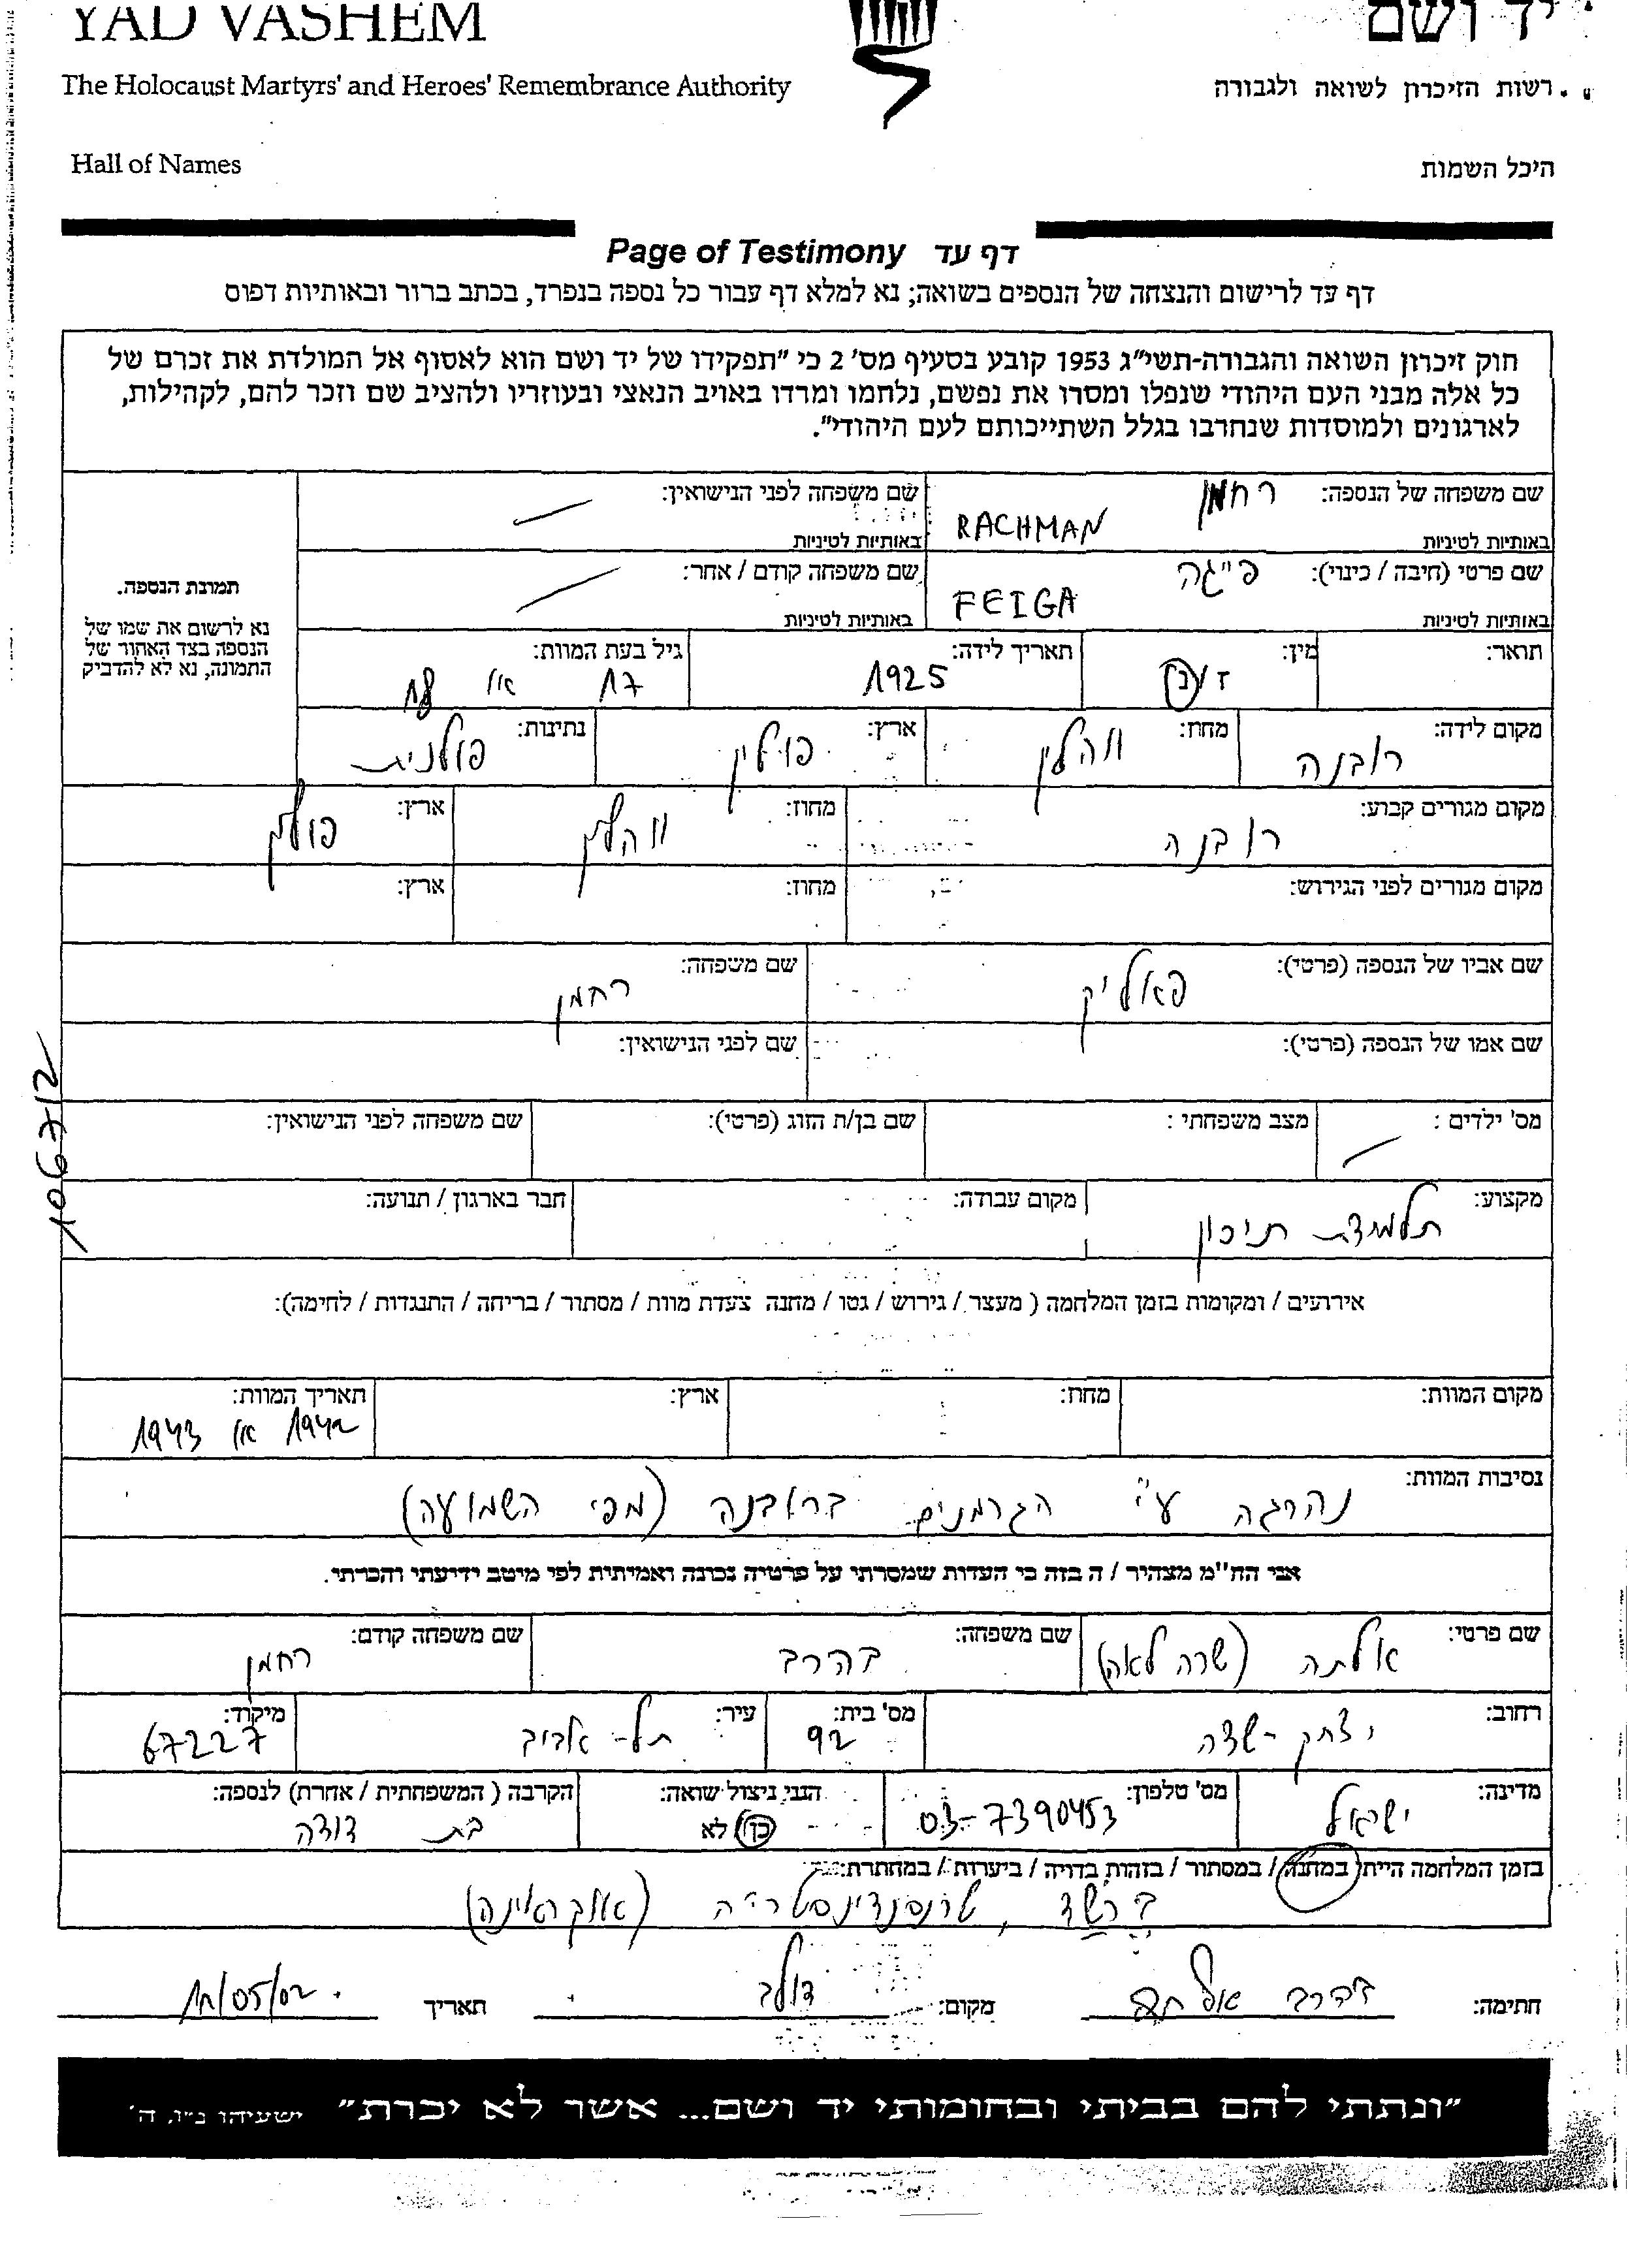 YAD VASHEM יד ושם
The Holocaust Martyrs' and Heroes' Remembrance Authority רשות הזיכרון לשואה ולגבורה
Hall of Names היכל השמות
Page of Testimony דף עד
דף עד לרישום והנצחה של הנספים בשואה; נא למלא דף עבור כל נספה בנפרד, בכתב ברור ובאותיות דפוס
חוק זיכרון השואה והגבורה-תשי״ג 1953 קובע בסעיף מס' 2 כי "תפקידו של יד ושם הוא לאסוף אל המולדת את זכרם של
כל אלה מבני העם היהודי שנפלו ומסרו את נפשם, נלחמו ומרדו באויב הנאצי ובעוזריו ולהציב שם וזכר להם, לקהילות,
לארגונים ולמוסדות שנחרבו בגלל השתייכותם לעם היהודי".
שם משפחה של הנספה: רחמן שם משפחה לפני הנישואין:
באותיות לטיניות RACHMAN באותיות לטיניות
שם פרטי (חיבה / כינוי): פייגה שם משפחה קודם / אחר:
באותיות לטיניות FEIGA באותיות לטיניות
תמונת הנספה.
נא לרשום את שמו של
הנספה בצד האחור של
התמונה, נא לא להדביק
תואר: מין: ז / נ תאריך לידה: 1925 גיל בעת המוות: 17 או 18
מקום לידה: רובנה מחוז: ווהלין ארץ: פולין נתינות: פולנית
מקום מגורים קבוע: רובנה מחוז: ווהלין ארץ: פולין
מקום מגורים לפני הגירוש: מחוז: ארץ:
שם אביו של הנספה (פרטי): פאליק שם משפחה: רחמן
שם אמו של הנספה (פרטי): שם לפני הנישואין:
מס' ילדים : מצב משפחתי : שם בן/ת הזוג (פרטי): שם משפחה לפני הנישואין:
מקצוע: תלמידת תיכון מקום עבודה: חבר בארגון / תנועה:
106712
אירועים / ומקומות בזמן המלחמה ( מעצר / גירוש / גטו / מחנה צעדת מוות / מסתור / בריחה / התנגדות / לחימה):
מקום המוות: מחוז: ארץ: תאריך המוות:
1942 או 1943
נסיבות המוות: נהרגה ע"י הגרמנים ברובנה (מפי השמועה)
אני הח"מ מצהיר / ה בזה כי העדות שמסרתי על פרטיה נכונה ואמיתית לפי מיטב ידיעתי והכרתי.
שם פרטי: אלתה (שרה לאה) שם משפחה: בהרב שם משפחה קודם: רחמן
רחוב: יצחק שדה מס' בית: 92 עיר: תל-אביב מיקוד: 67227
מדינה: ישראל מס' טלפון: 03-7390453 הנני ניצול שואה: כן / לא הקרבה ( המשפחתית / אחרת) לנספה: בת דודה
בזמן המלחמה הייתי במחנה / במסתור / בזהות בדויה / ביערות / במחתרת:
ברשד, טרנסנדינסטריה (אוקראינה)
חתימה: בהרב אלתה מקום: תאריך 11/05/02
"ונתתי להם בביתי ובחומותי יד ושם... אשר לא יכרת" ישעיהו נ"ו, ה'